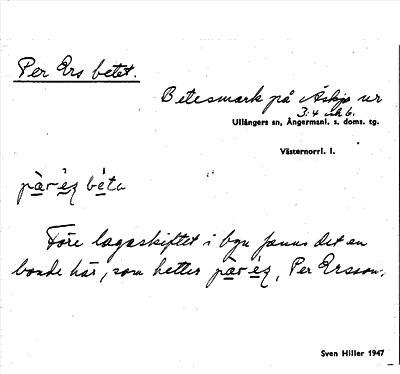 Per Ers betet.
Betesmark på Äskja ur
3:4 och 6.
Ullångers sn, Ångermanl. s. doms. tg.
Västernorrl. l.
pàr èṣ béta
Före lagaskiftet i byn fanns det en
bonde här, som hetter pàr èṣ, Per Ersson.
Sven Hiller 1947